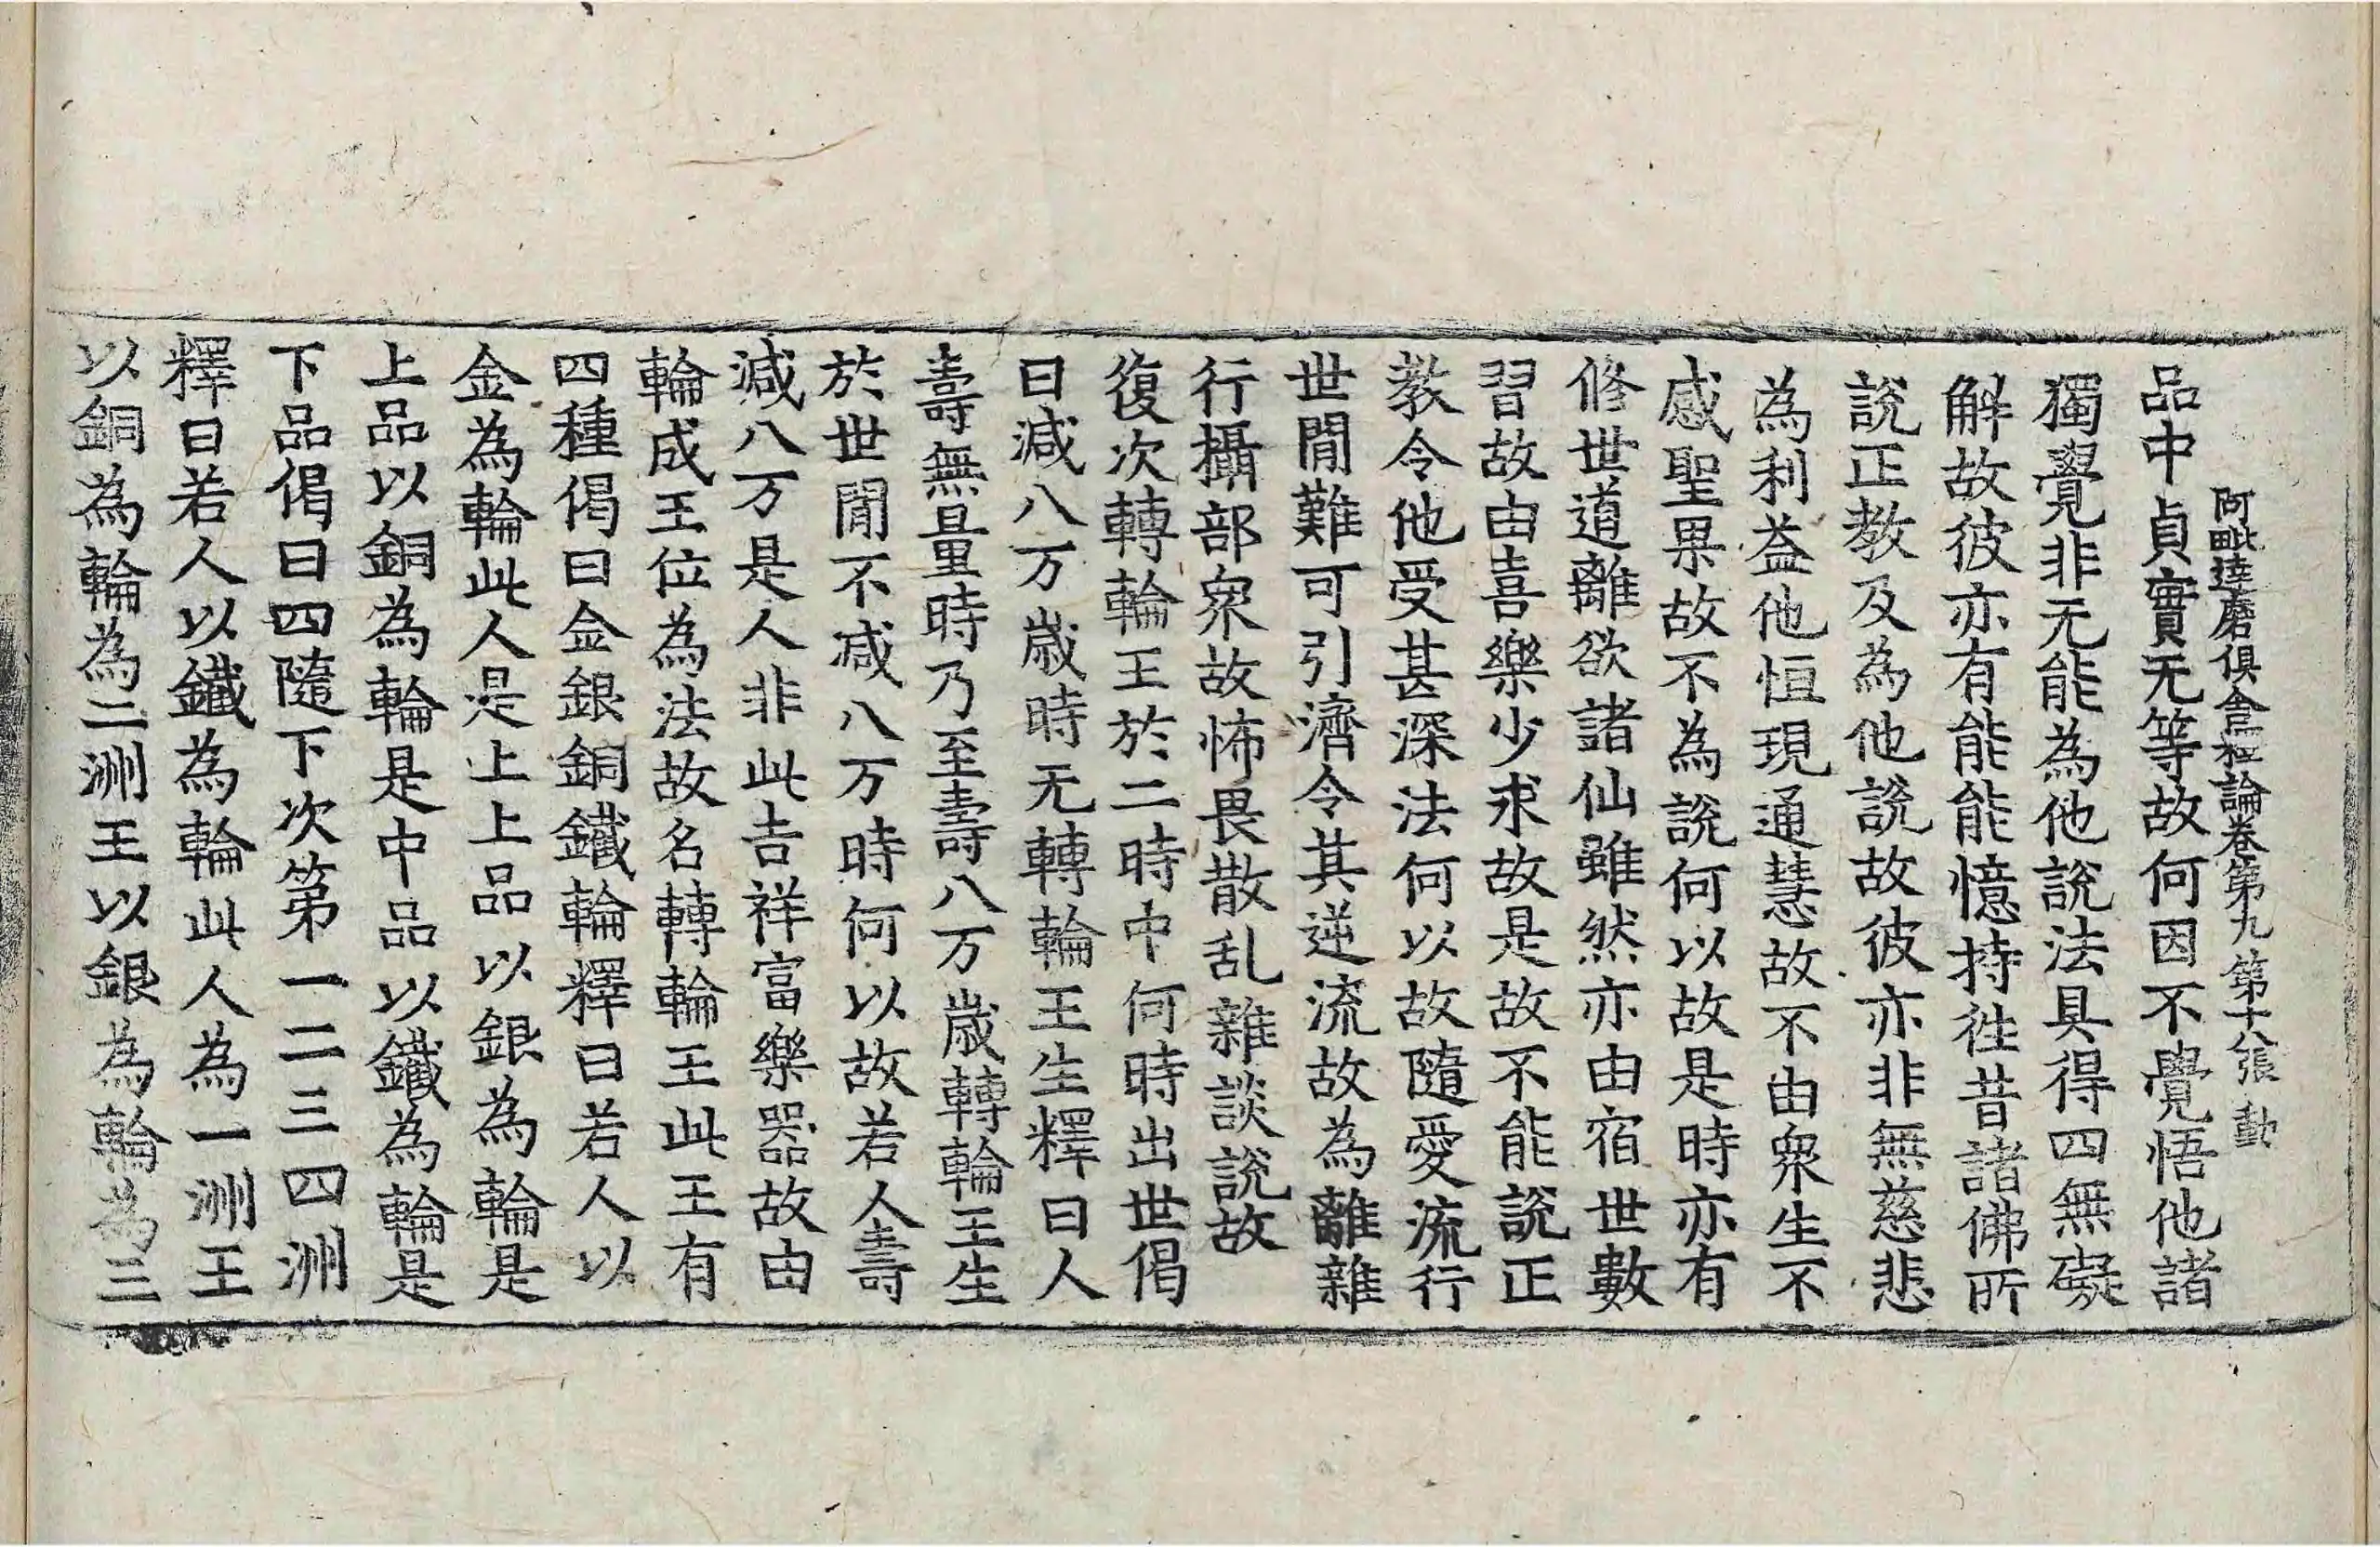 阿毗達磨俱舍釋論卷第九 第十八張 動
品中貞實无等故何因不覺悟他諸
獨覺非无能為他說法具得四無礙
解故彼亦有能能憶持往昔諸佛所
說正教及為他說故彼亦非無慈悲
為利益他恒現通慧故不由衆生不
感聖果故不為說何以故是時亦有
修世道離欲諸仙雖然亦由宿世數
習故由喜樂少求故是故不能說正
教令他受甚深法何以故隨愛流行
世間難可引濟令其逆流故為離雜
行攝部衆故怖畏散乱雜談說故
復次轉輪王於二時中何時出世偈
曰減八万歲時无轉輪王生釋曰人
壽無量時乃至壽八万歲轉輪王生
於世間不减八万時何以故若人壽
減八万是人非此吉祥富樂器故由
輪成王位為法故名轉輪王此王有
四種偈曰金銀銅鐵輪釋曰若人以
金為輪此人是上上品以銀為輪是
上品以銅為輪是中品以鐵為輪是
下品偈曰四隨下次第一二三四洲
釋曰若人以鐵為輪此人為一洲王
以銅為輪為二洲王以銀為輪為三